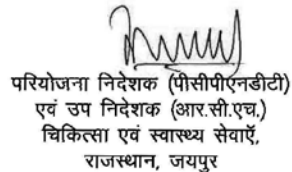 परियोजना निदेशक (पीसीपीएनडीटी)
एवं उप निदेशक (आर.सी.एच.)
चिकित्सा एवं स्वास्थ्य सेवाऐं,
राजस्थान, जयपुर